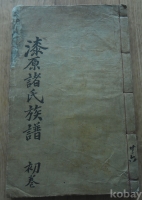 漆原諸氏族譜
初卷
kobay